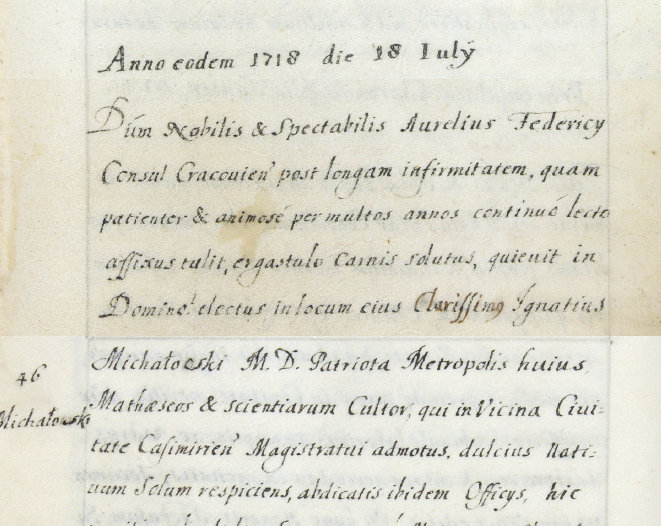 Anno eodem 1718 die 18 Iulÿ
Dũm Nobilis & Spectabilis Aurelius Federicy
Consul Cracouień post longam infirmitatem, quam
patienter & animosé per multos annos continuó lecto
affixus tulit, ergastulo Carnis solutus, quieuit in
Domino: electus in locum eius Clarissimq Ignatius
Michałowski M. D. Patriota Metropolis huius,
46
Michałowski
Mathæseos & scientiarum Cultor, qui in Vicina Ciui-
tate Casimirień Magistratui admotus, dulcius Nati-
uum Solum respiciens, abdicatis ibidem Officÿs, hic